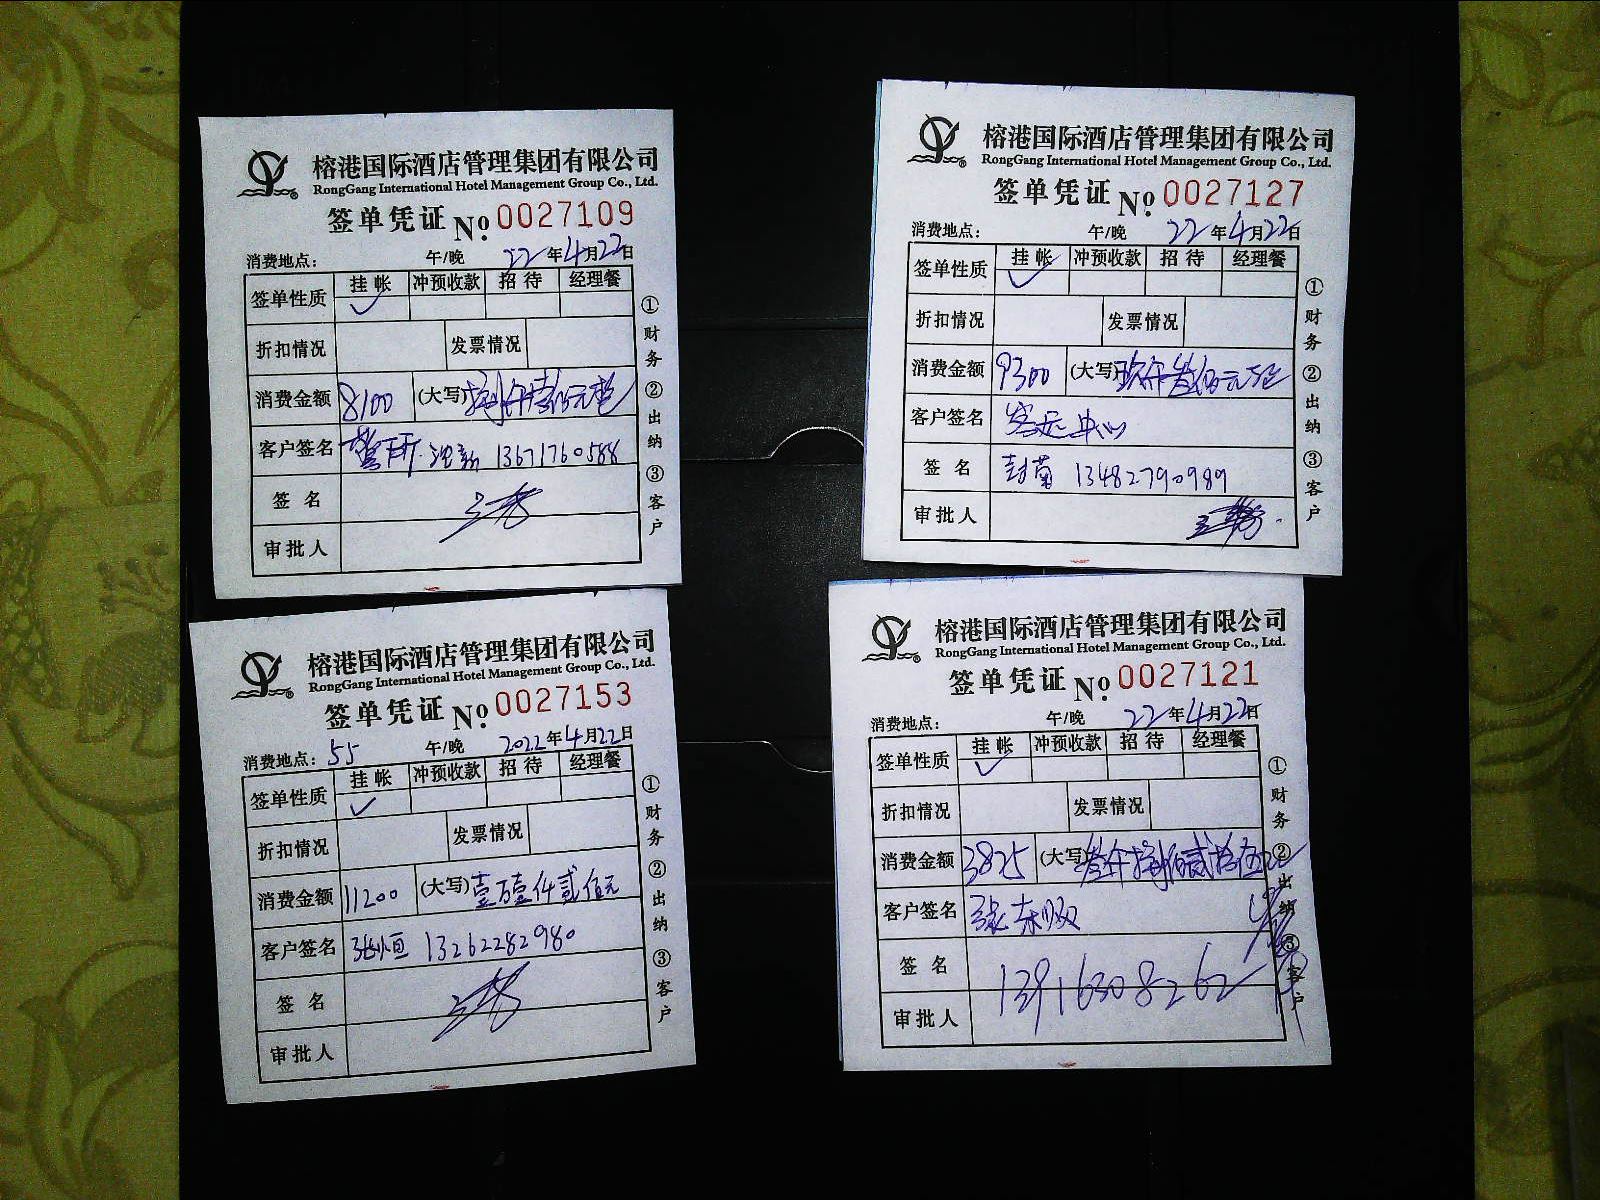 榕港国际酒店管理集团有限公司
RongGang International Hotel Management Group Co., Ltd.
签单凭证 No. 0027109
消费地点: 午/晚 22年4月22日
签单性质 挂帐 冲预收款 招待 经理餐
✓
折扣情况 发票情况
消费金额 8100 (大写)捌仟壹佰元整
客户签名 警所 13671760588
签名
审批人
①财务 ②出纳 ③客户
榕港国际酒店管理集团有限公司
RongGang International Hotel Management Group Co., Ltd.
签单凭证 No. 0027127
消费地点: 午/晚 22年4月22日
签单性质 挂帐 冲预收款 招待 经理餐
✓
折扣情况 发票情况
消费金额 9300 (大写)玖仟叁佰元
客户签名 客运中心
签名 封菊 13482790989
审批人
①财务 ②出纳 ③客户
榕港国际酒店管理集团有限公司
RongGang International Hotel Management Group Co., Ltd.
签单凭证 No. 0027153
消费地点: 55 午/晚 2022年4月22日
签单性质 挂帐 冲预收款 招待 经理餐
✓
折扣情况 发票情况
消费金额 11200 (大写)壹万壹仟贰佰元
客户签名 张恒 13262282980
签名
审批人
①财务 ②出纳 ③客户
榕港国际酒店管理集团有限公司
RongGang International Hotel Management Group Co., Ltd.
签单凭证 No. 0027121
消费地点: 午/晚 22年4月22日
签单性质 挂帐 冲预收款 招待 经理餐
✓
折扣情况 发票情况
消费金额 3825 (大写)叁仟捌佰贰拾伍元
客户签名 张东顺
签名 13916308262
审批人
①财务 ②出纳 ③客户